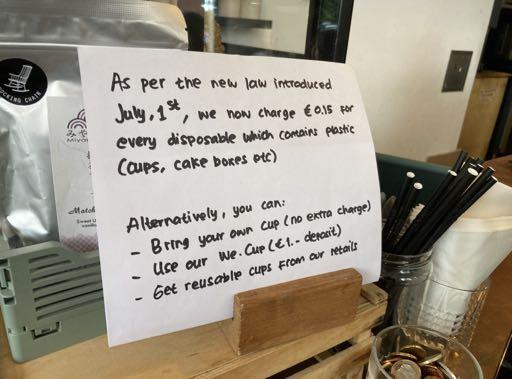 ROCKING CHAIR
As per the new law introduced
July, 1st, we now charge € 0.15 for
every disposable which contains plastic
(cups, cake boxes etc)
Alternatively, you can:
- Bring your own cup (no extra charge)
- Use our We.Cup (€1.- deposit)
- Get reusable cups from our retails